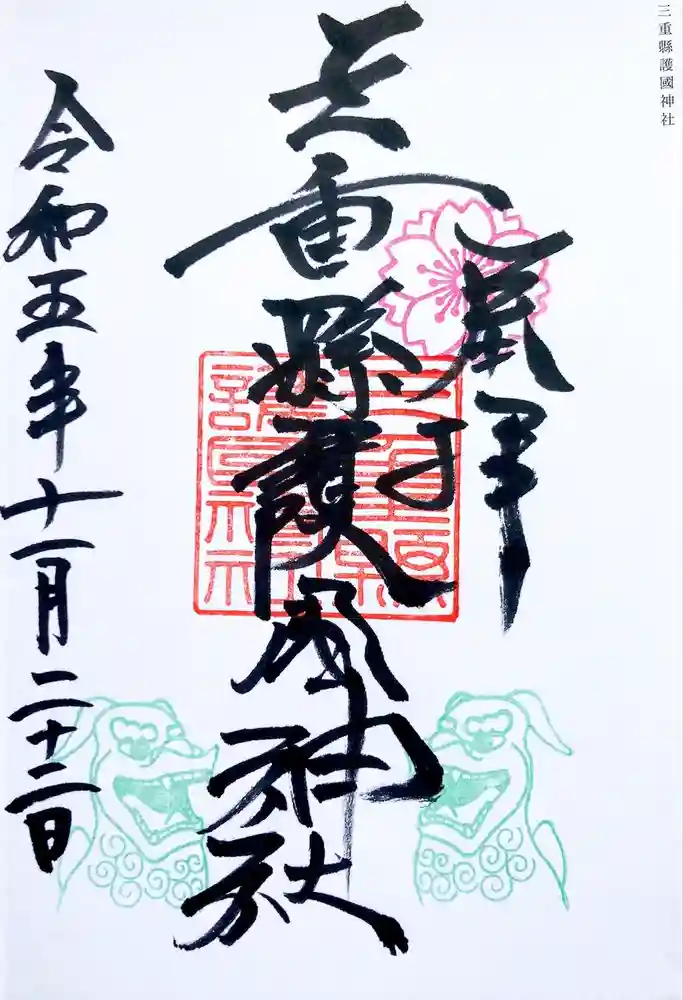 三重縣護國神社
奉拝
三重縣護國神社
三重縣護國神社
令和五年十一月二十二日